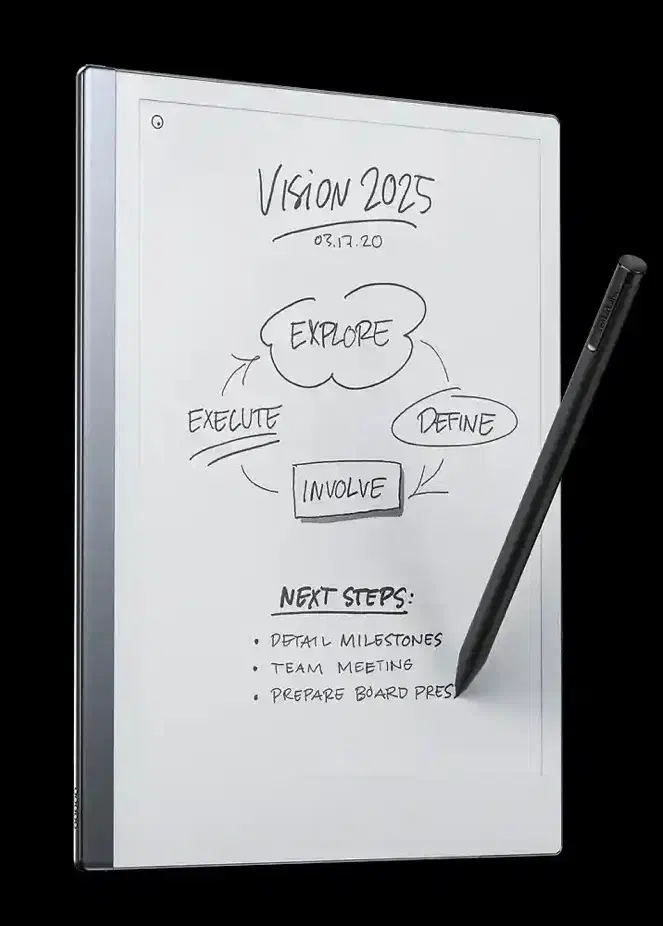 VISION 2025
03.17.20
EXPLORE
EXECUTE
DEFINE
INVOLVE
NEXT STEPS:
• DETAIL MILESTONES
• TEAM MEETING
• PREPARE BOARD PRES